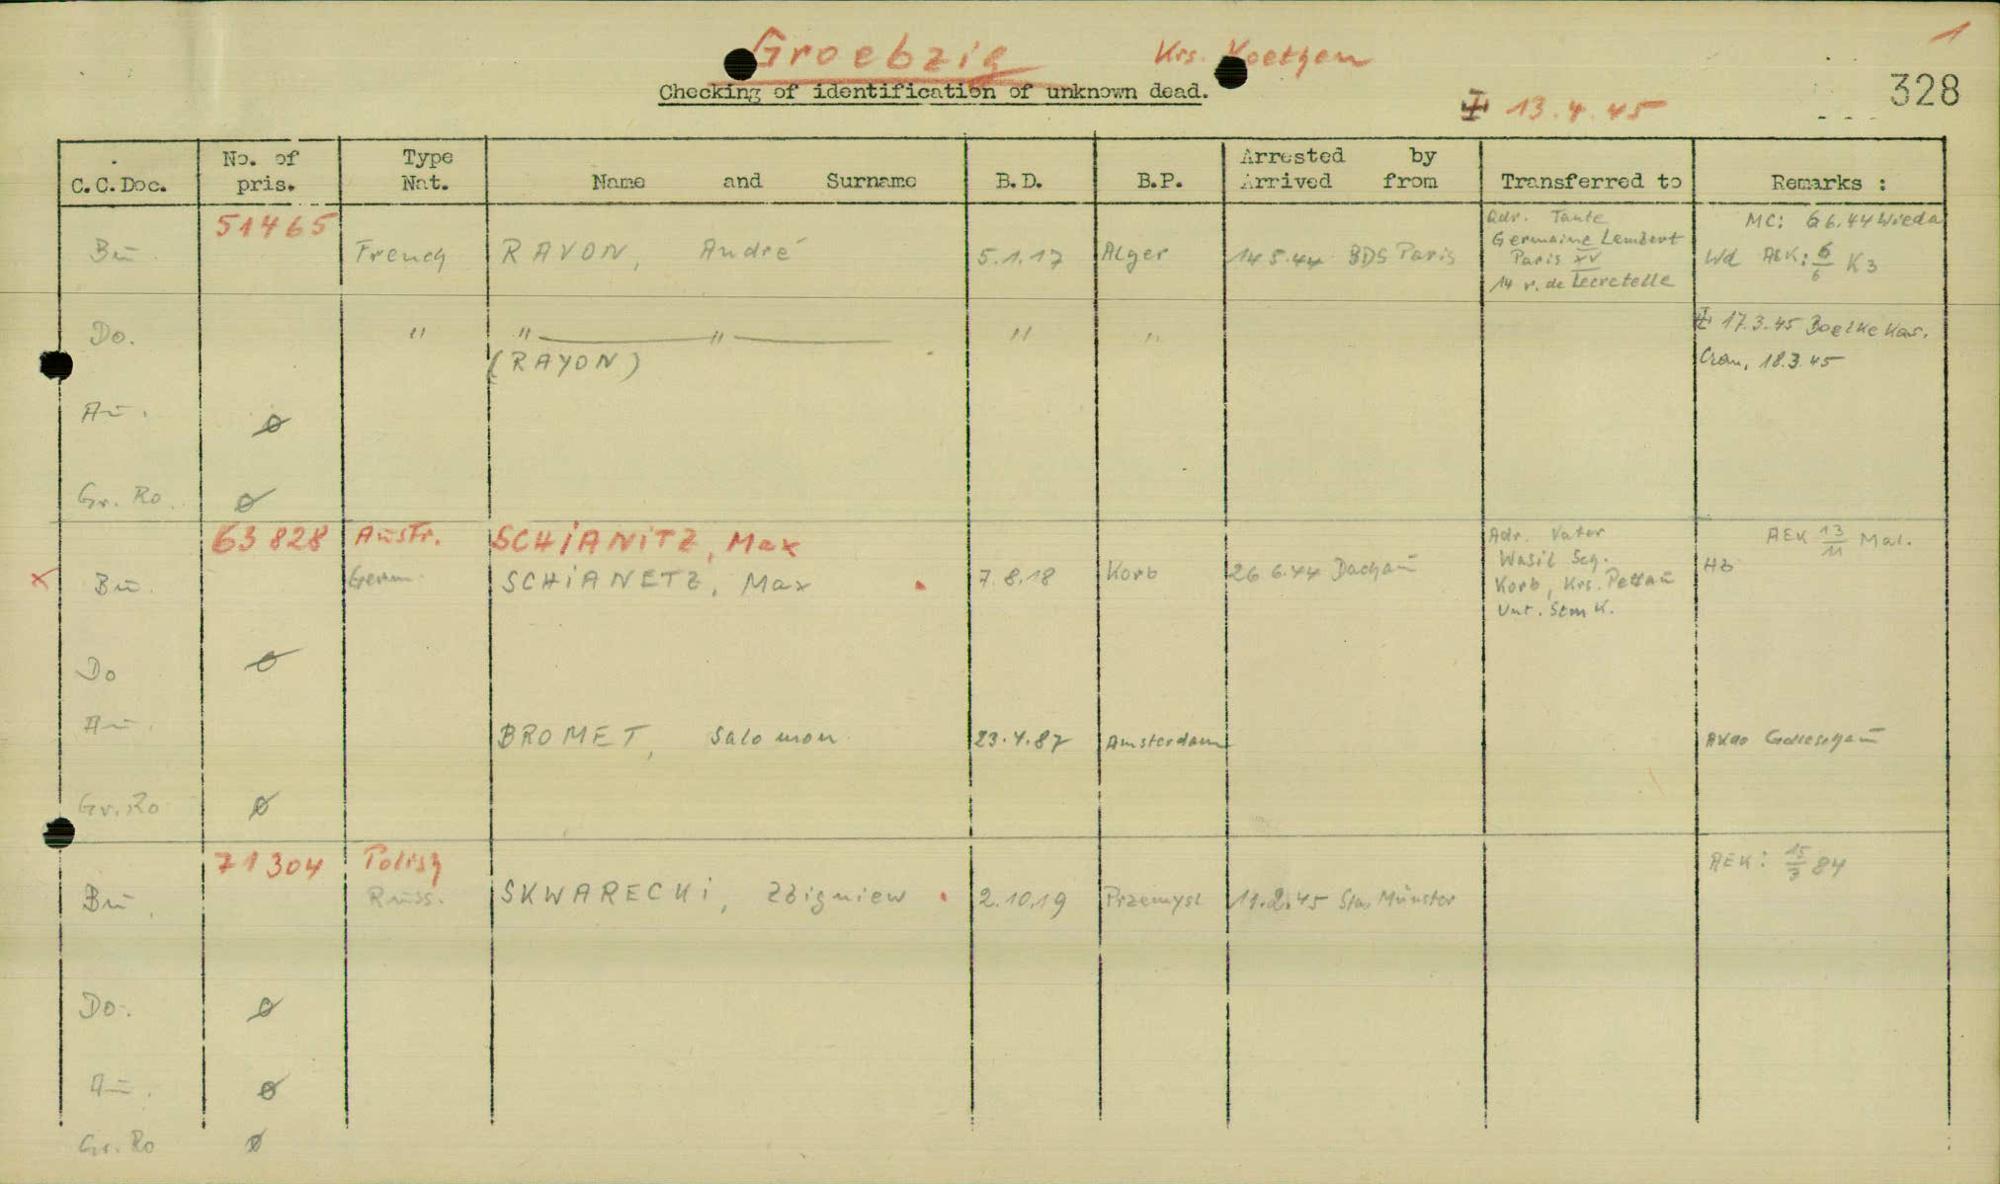 1
Groebzig Krs. Koethen
Checking of identification of unknown dead.
13.4.45
328
C.C.Doc. No. of pris. Type Nat. Name and Surname B.D. B.P. Arrested by Arrived from Transferred to Remarks :
51465
Bū. French RAVON, André 5.1.17 Alger 14 5.44 BDS Paris
Adr. Tante
Germaine Lembert
Paris XV
14 r. de Lecretelle
MC: 6 6.44 Wieda
Wd AEK: 6/6 K3
Do. " " " " "
(RAYON)
17.3.45 Boelke Kas.
Crem. 18.3.45
Aū. ø
Gr. Ro. ø
63828 Austr. SCHiANiTZ, Max
x Bū. Germ. SCHiANETZ, Max 7.8.18 Korb 26 6.44 Dachaū
Adr. Vater
Wasil Sch.
Korb, Krs. Pettaū
Unt. Stmk.
AEK 13/11 Mal.
Hb
Do ø
Aū. BROMET, Salomon 23.4.87 Amsterdam
Golleschaū
Gr. Ro ø
71304 Polish
Bū. Rūss. SKWARECKi, Zbigniew 2.10.19 Przemysl 11.2.45 Münster
AEK: 15/3 84
Do. ø
Aū. ø
Gr. Ro ø